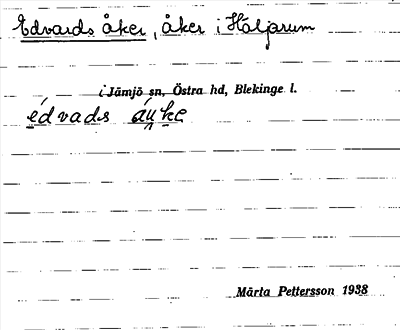 Edvards åker, åker i Haljarum
i Jämjö sn, Östra hd, Blekinge l.
édvads áu̯ke
Märta Pettersson 1938